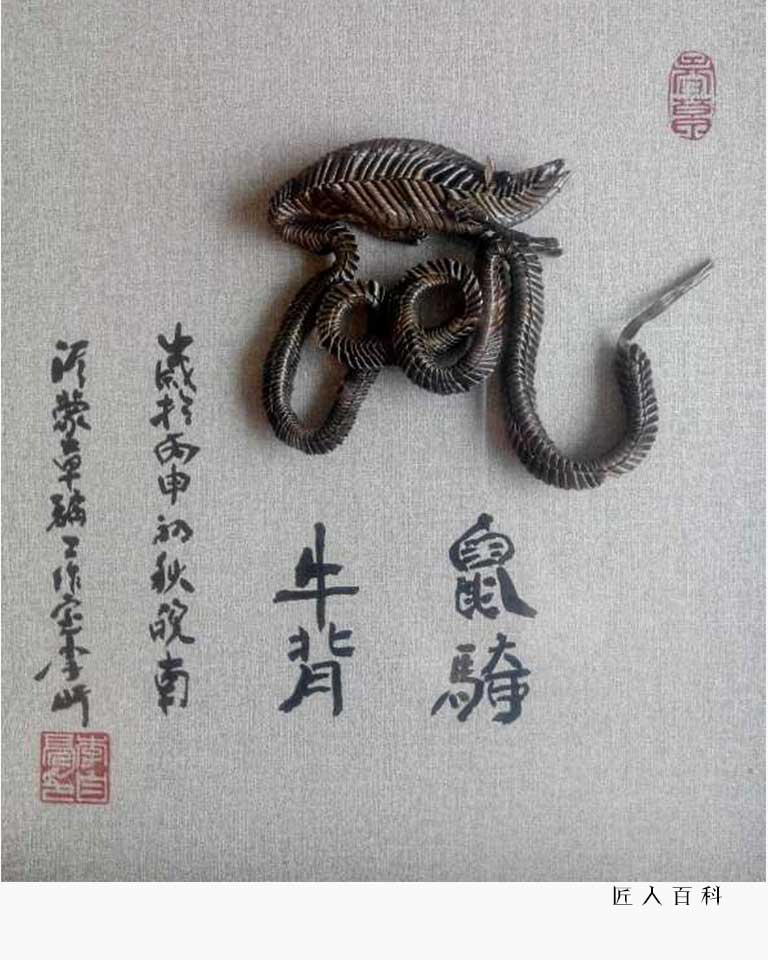 鼠騎
牛背
歲於丙申初秋皖南
草編工作室李
匠人百科